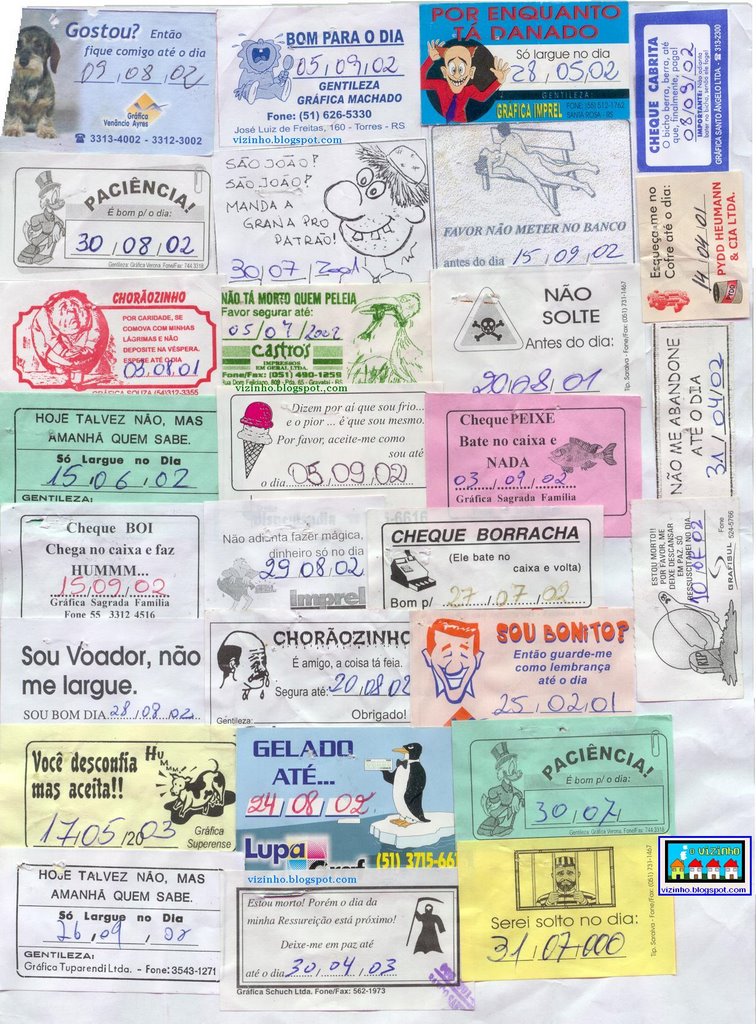 Gostou? Então
fique comigo até o dia
09,08,02
Gráfica
Venâncio Ayres
3313-4002 - 3312-3002
BOM PARA O DIA
05,09,02
GENTILEZA
GRÁFICA MACHADO
Fone: (51) 626-5330
José Luiz de Freitas, 160 - Torres - RS
vizinho.blogspot.com
POR ENQUANTO
TÁ DANADO
Só largue no dia
28,05,02
GENTILEZA:
GRAFICA IMPREL
FONE (55) 512-1762
SANTA ROSA - RS
CHEQUE CABRITA
O bicho berra, berra, até
que, finalmente, paga!
08/09/02
IMPORTANTE: Não adianta
bater no bicho, senão ele foge!
GRÁFICA SANTO ÂNGELO LTDA - 313-2300
PACIÊNCIA!
É bom p/ o dia:
30,08,02
Gentileza: Gráfica Verona. Fone/Fax: 744.3318
SÃO JOÃO!
SÃO JOÃO!
MANDA A
GRANA PRO
PATRÃO!
30,07,
FAVOR NÃO METER NO BANCO
antes do dia 15,09,02
Esqueça-me no
Cofre até o dia:
14,04,01
PYDD HEUMANN
& CIA LTDA.
CHORÃOZINHO
POR CARIDADE, SE
COMOVA COM MINHAS
LÁGRIMAS E NÃO
DEPOSITE NA VÉSPERA.
ESPERE ATÉ O DIA
03.08.01
GRÁFICA SOUZA (54)312-3355
NÃO TÁ MORTO QUEM PELEIA
Favor segurar até:
05/07/2002
Castros
IMPRESSOS
EM GERAL LTDA.
Fone/Fax: (051) 490-1259
Rua Dom Feliciano, 809 - Pda. 65 - Gravataí - RS
vizinho.blogspot.com
NÃO
SOLTE
Antes do dia:
20,08,01
Tip. Saraiva - Fone/Fax: (051) 731-1467
NÃO ME ABANDONE
ATÉ O DIA
31/04/02
HOJE TALVEZ NÃO, MAS
AMANHÃ QUEM SABE.
Só Largue no Dia
15,06,02
GENTILEZA:
Dizem por aí que sou frio...
e o pior ... é que sou mesmo.
Por favor, aceite-me como
sou até
o dia 05.09.02
Cheque PEIXE
Bate no caixa e
NADA
03.09.02
Gráfica Sagrada Família
Cheque BOI
Chega no caixa e faz
HUMMM...
15,09,02
Gráfica Sagrada Família
Fone 55 3312 4516
Não adianta fazer mágica,
dinheiro só no dia
29.08.02
Imprel
CHEQUE BORRACHA
(Ele bate no
caixa e volta)
Bom p/ 27/07/02
ESTOU MORTO!!
POR FAVOR, ME
DEIXE DESCANSAR
EM PAZ. SÓ
RESSUSCITAREI NO DIA...
10,07,02
Fone
524-5766
GRAFISUL
RIP
Sou Voador, não
me largue.
SOU BOM DIA 28.08.02
CHORÃOZINHO
É amigo, a coisa tá feia.
Segura até: 20,08,02
Obrigado!
Gentileza:
SOU BONITO?
Então guarde-me
como lembrança
até o dia
25,02,01
Você desconfia
mas aceita!!
HUMMM
17,05,2003
Gráfica
Superense
GELADO
ATÉ...
24,08,02
Lupa
Graf
(51) 3715-66
vizinho.blogspot.com
PACIÊNCIA!
É bom p/ o dia:
30,07,
Gentileza: Gráfica Verona. Fone/Fax: 744.3318
o vizinho
vizinho.blogspot.com
HOJE TALVEZ NÃO, MAS
AMANHÃ QUEM SABE.
Só Largue no Dia
26,09,02
GENTILEZA:
Gráfica Tuparendi Ltda. - Fone: 3543-1271
Estou morto! Porém o dia da
minha Ressureição está próximo!
Deixe-me em paz até
até o dia 30,04,03
Gráfica Schuch Ltda. Fone/Fax: 562-1973
Serei solto no dia:
31,07,000
Tip. Saraiva - Fone/Fax: (051) 731-1467